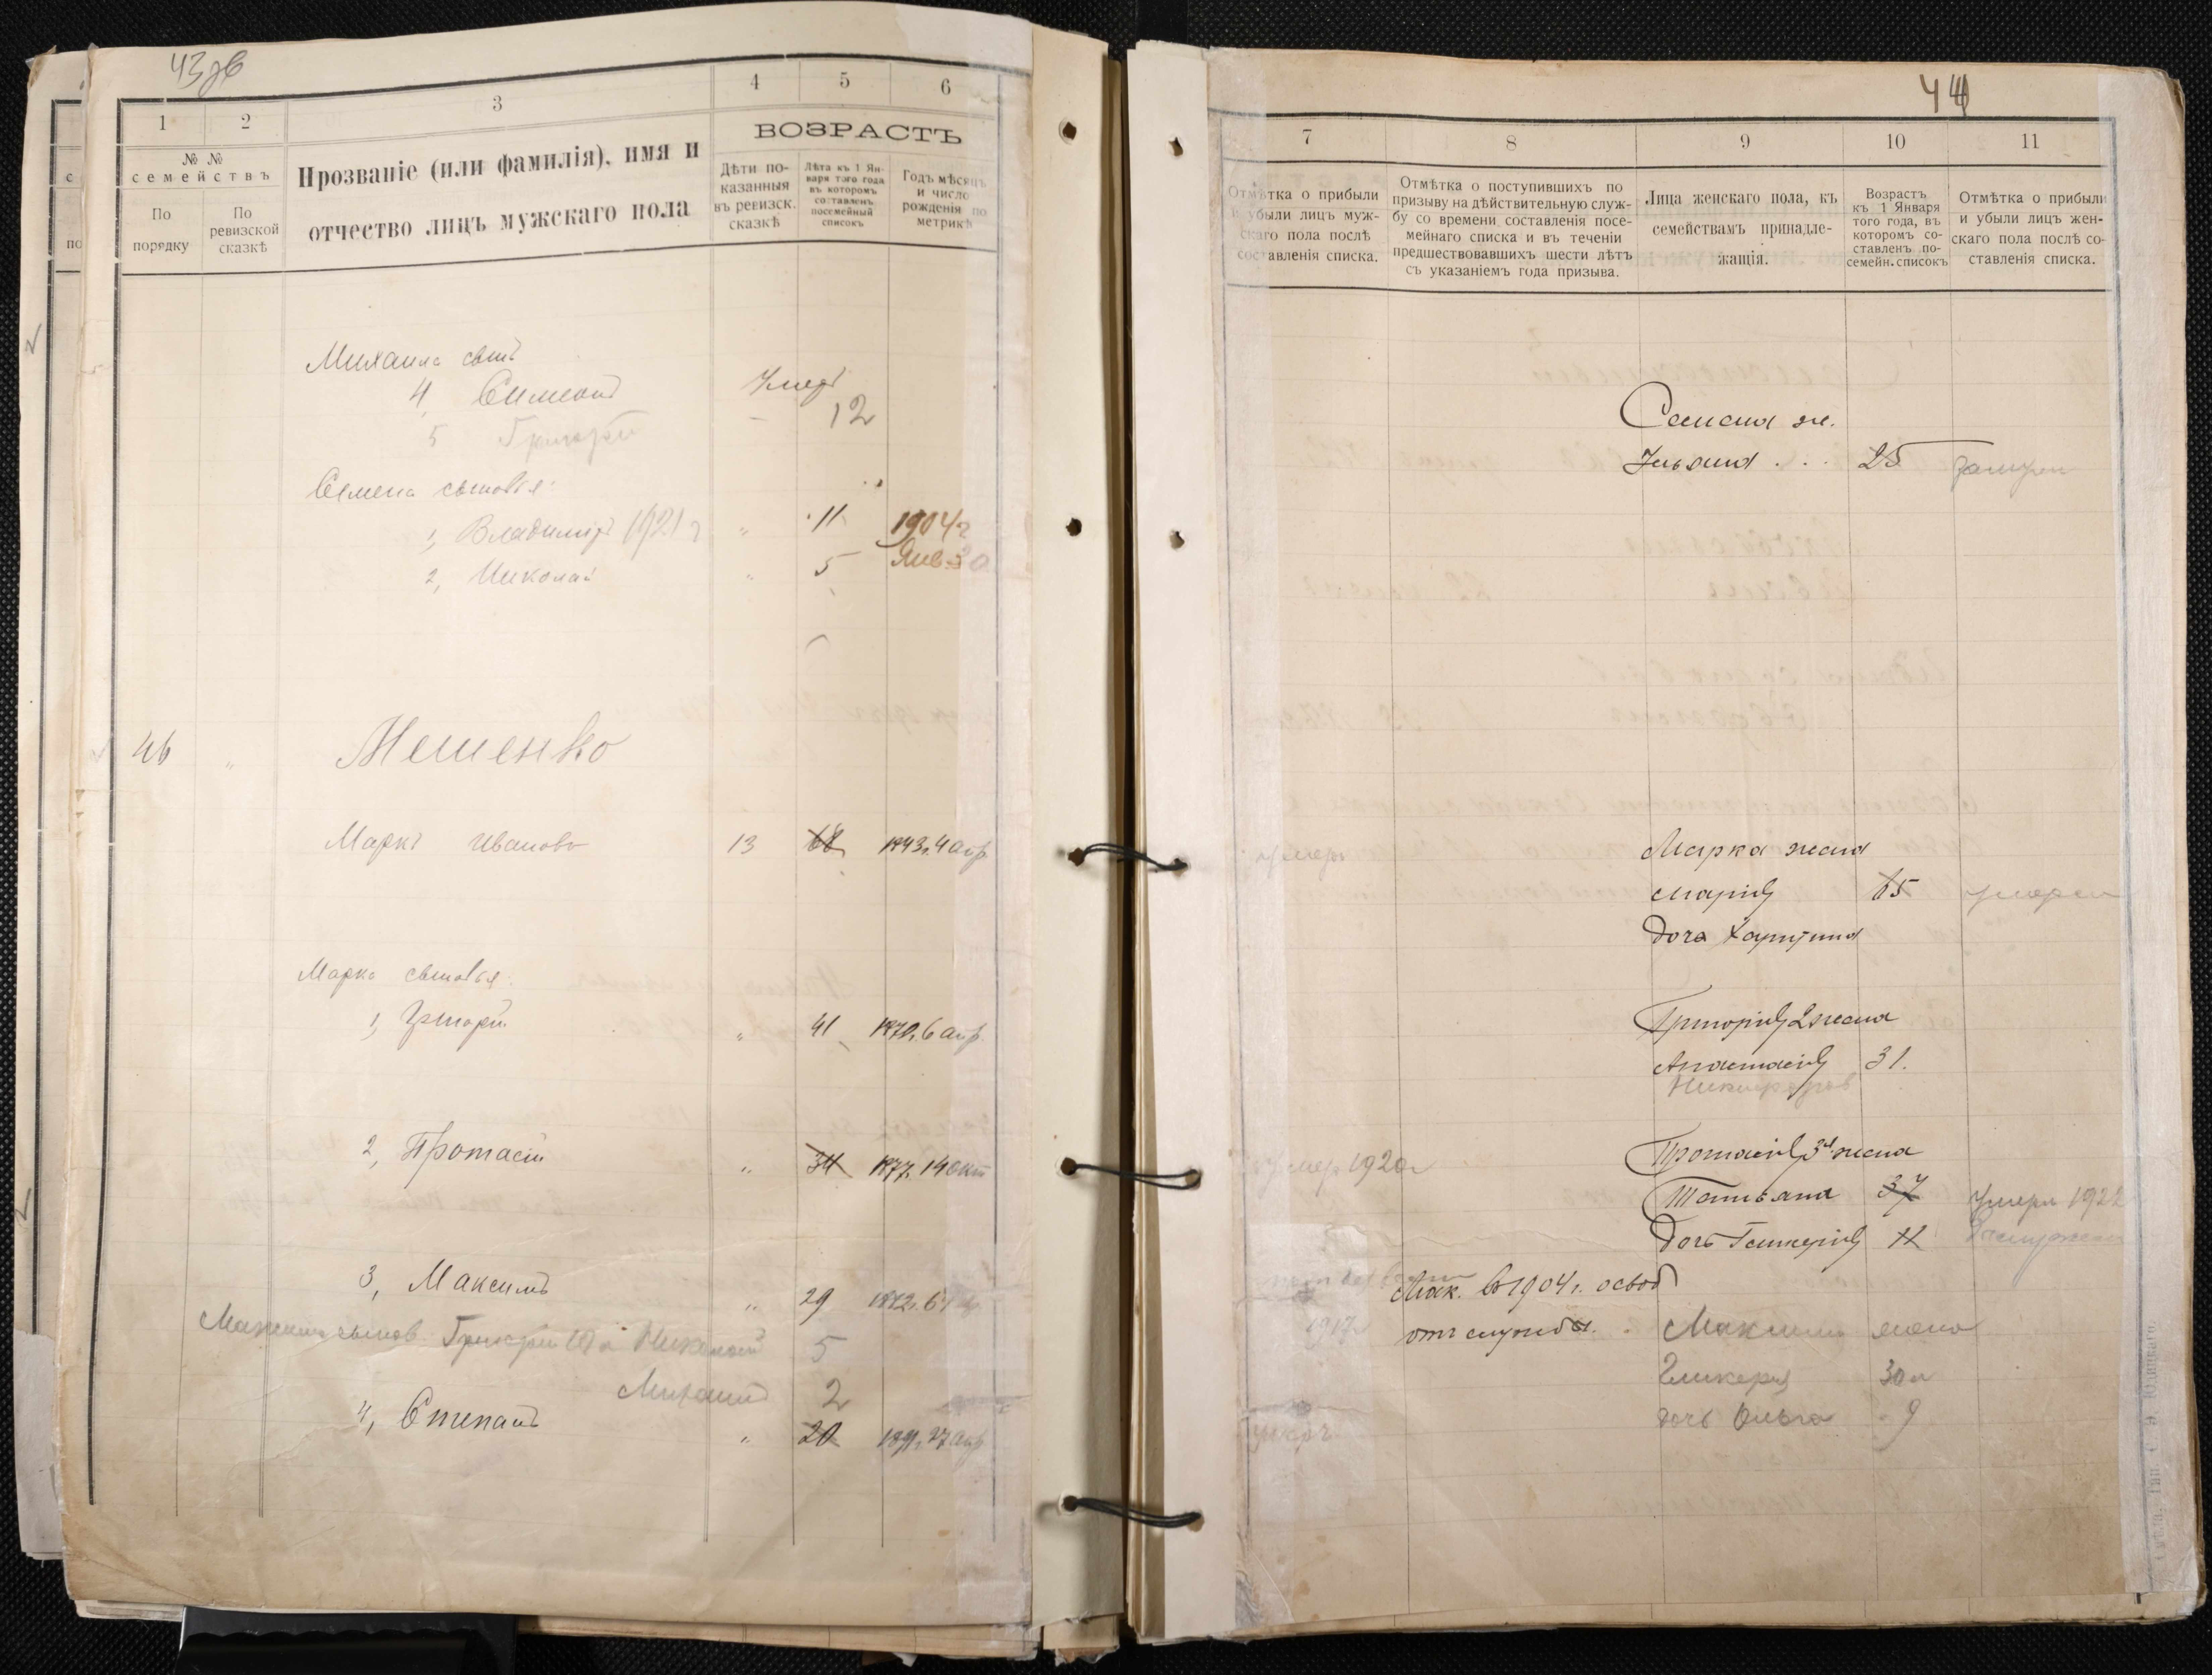 43об
1
2
3
4
5
6
№ №
семействъ
По порядку
По ревизской сказкѣ
Прозваніе (или фамилія), имя и
отчество лицъ мужскаго пола
ВОЗРАСТЪ
Дѣти по-
казанныя
въ ревизск.
сказкѣ
Лѣта къ 1 Ян-
варя того года
въ которомъ
составленъ
посемейный
списокъ
Годъ мѣсяцъ
и число
рожденія по
метрикѣ
Михаила сынъ
4, Симеонъ Умеръ
5 Григорій 12
Семена сыновья:
1, Владиміръ 1921 г " 11 1904 г
Янв 30
2, Николай " 5
46 " Мешенко
Маркъ Ивановъ 13 68 1843 г. 4 апр
Марка сыновья:
1, Григорій " 41 1870 г. 6 апр.
2, Протасій " 34 1877 г. 14 окт
3, Максимъ " 29
Григорій Николай 5
Михаилъ 2
4, Степанъ " 20 27 апр
44
7
8
9
10
11
Отмѣтка о прибыли
и убыли лицъ муж-
скаго пола послѣ
составленія списка.
Отмѣтка о поступившихъ по
призыву на дѣйствительную служ-
бу со времени составленія посе-
мейнаго списка и въ теченіи
предшествовавшихъ шести лѣтъ
съ указаніемъ года призыва.
Лица женскаго пола, къ
семействамъ принадле-
жащія.
Возрастъ
къ 1 Января
того года, въ
которомъ со-
ставленъ по-
семейн. списокъ
Отмѣтка о прибыли
и убыли лицъ жен-
скаго пола послѣ со-
ставленія списка.
Семена ж.
Ульяна . . . 25
умеръ Марка жена
Марія 65 умерла
дочь Харитина
Григорія 2 жена
Анастасія 31.
Протасія 3я жена
умер 1920 г Татьяна 37 Умерла 1922
дочь Гликерія 11
Мак. въ 1904 г. освоб
1917 отъ службы. Максима жена
Гликерия 30 л
умеръ дочь Ольга 9